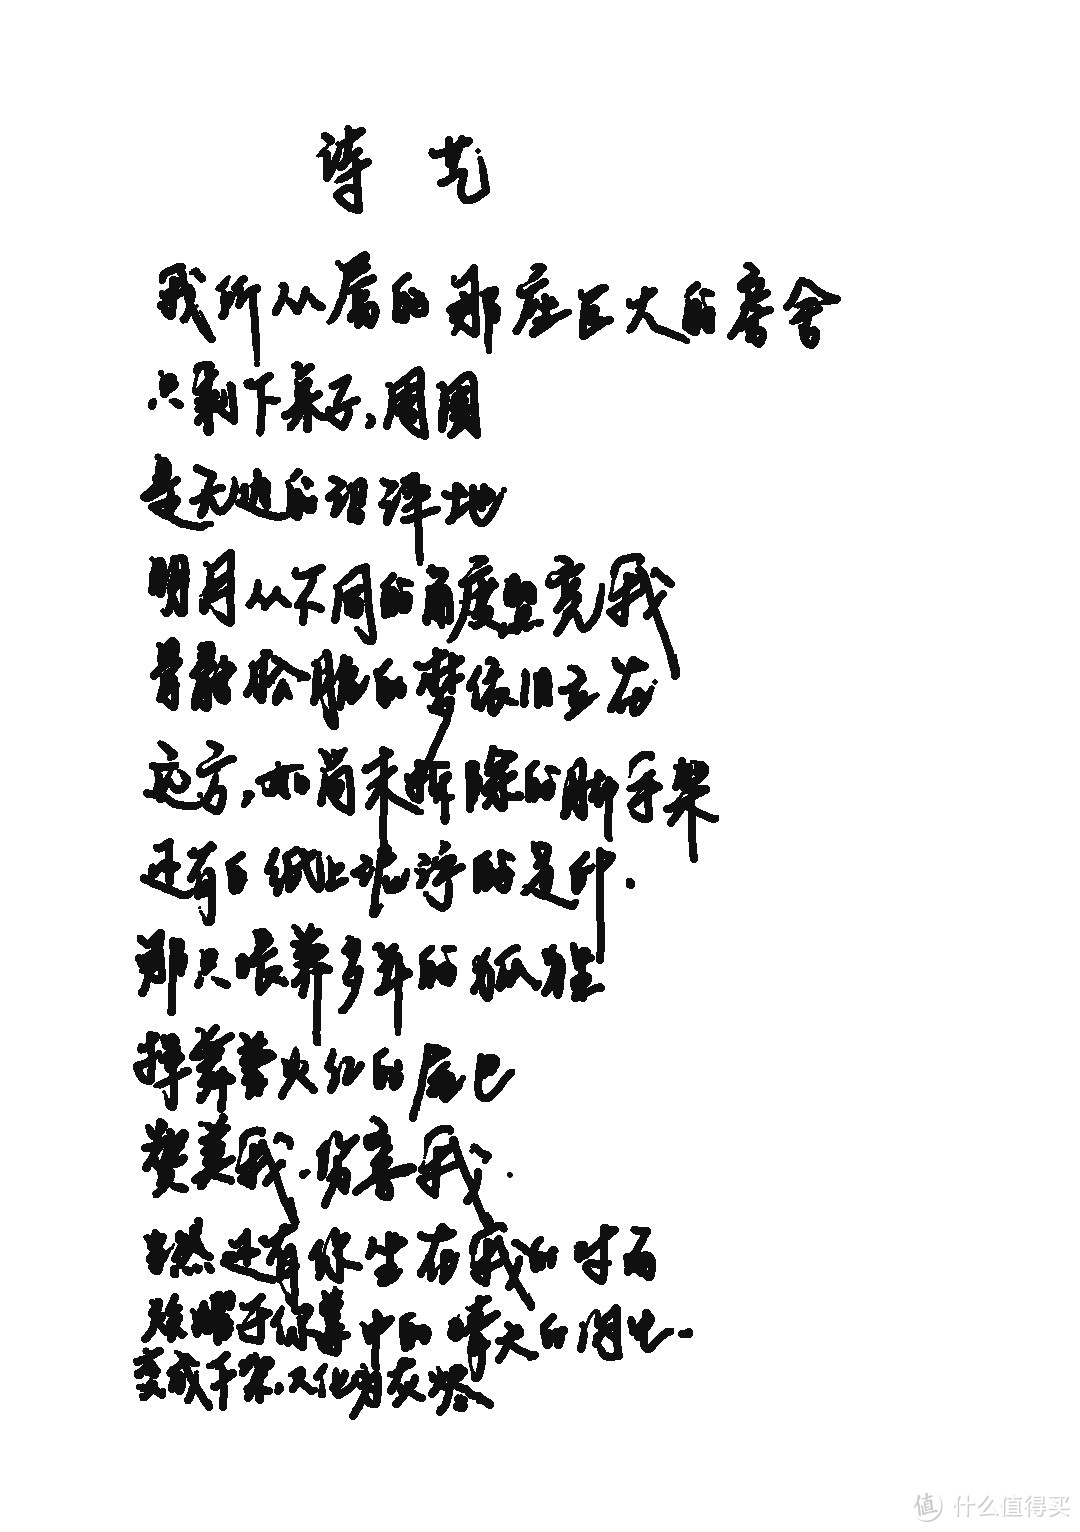 诗艺
我所从属的那座巨大的房舍
只剩下桌子,周围
是无边的沼泽地
明月从不同的角度照亮我
骨骼松脆的梦依旧立在
远方,如尚未拆除的脚手架
还有白纸上泥泞的足印.
那只喂养多年的狐狸
挥舞着火红的尾巴
赞美我.伤害我.
当然还有你坐在我的对面
炫耀于你掌中的晴天的闪电
变成干柴.又化为灰烬
值 什么值得买